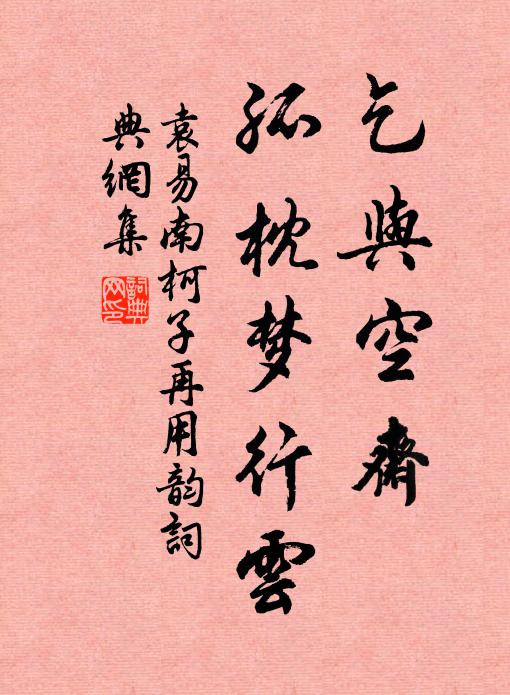 乞與空齋
孤枕梦行雲
袁易南柯子再用韵詞
典網集
詞典
网印